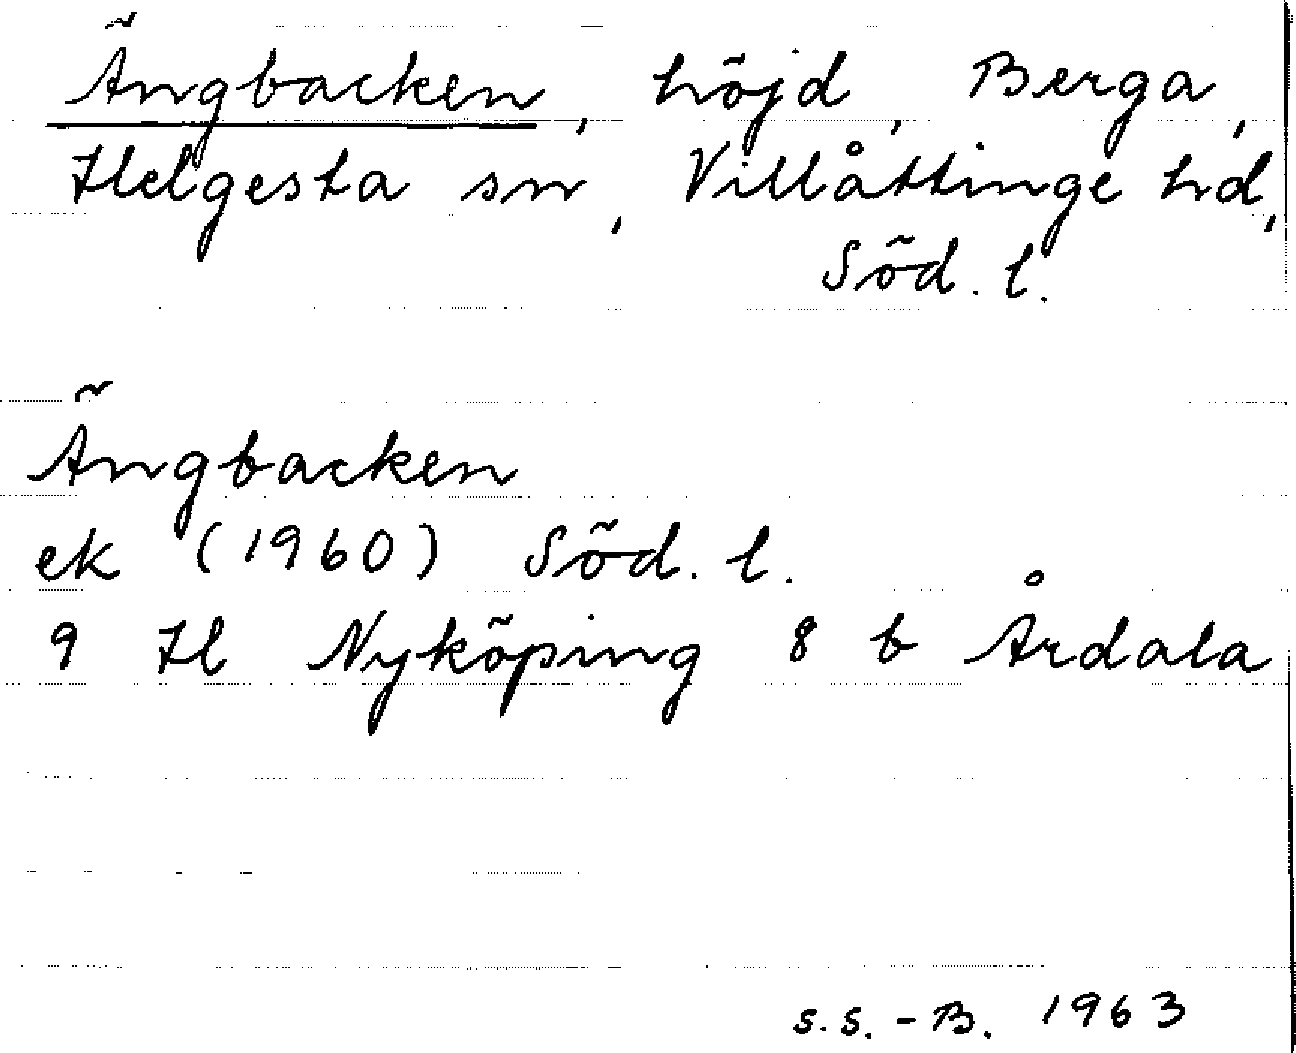 Ängbacken, höjd, Berga,
Helgesta sn, Villåttinge hd,
Söd. l.
Ängbacken
ek (1960) Söd. l.
9 H Nyköping 8 b Årdala
S.S.-B. 1963